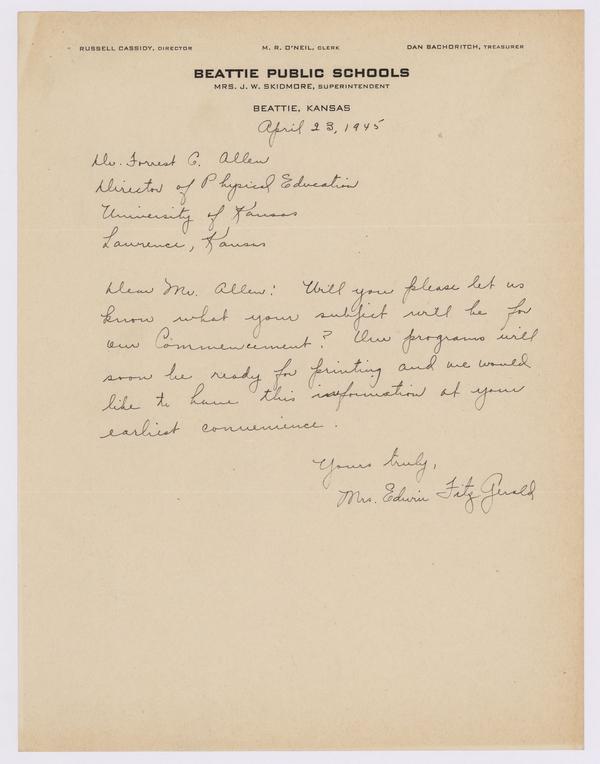 RUSSELL CASSIDY, DIRECTOR M. R. O'NEIL, CLERK DAN BACHORITCH, TREASURER
BEATTIE PUBLIC SCHOOLS
MRS. J. W. SKIDMORE, SUPERINTENDENT
BEATTIE, KANSAS
April 23, 1945
Dr. Forrest C. Allen
Director of Physical Education
University of Kansas
Lawrence, Kansas
Dear Mr. Allen: Will you please let us
know what your subject will be for
our Commencement? Our programs will
soon be ready for printing and we would
like to have this information at your
earliest convenience.
Yours truly,
Mrs. Edwin FitzGerald